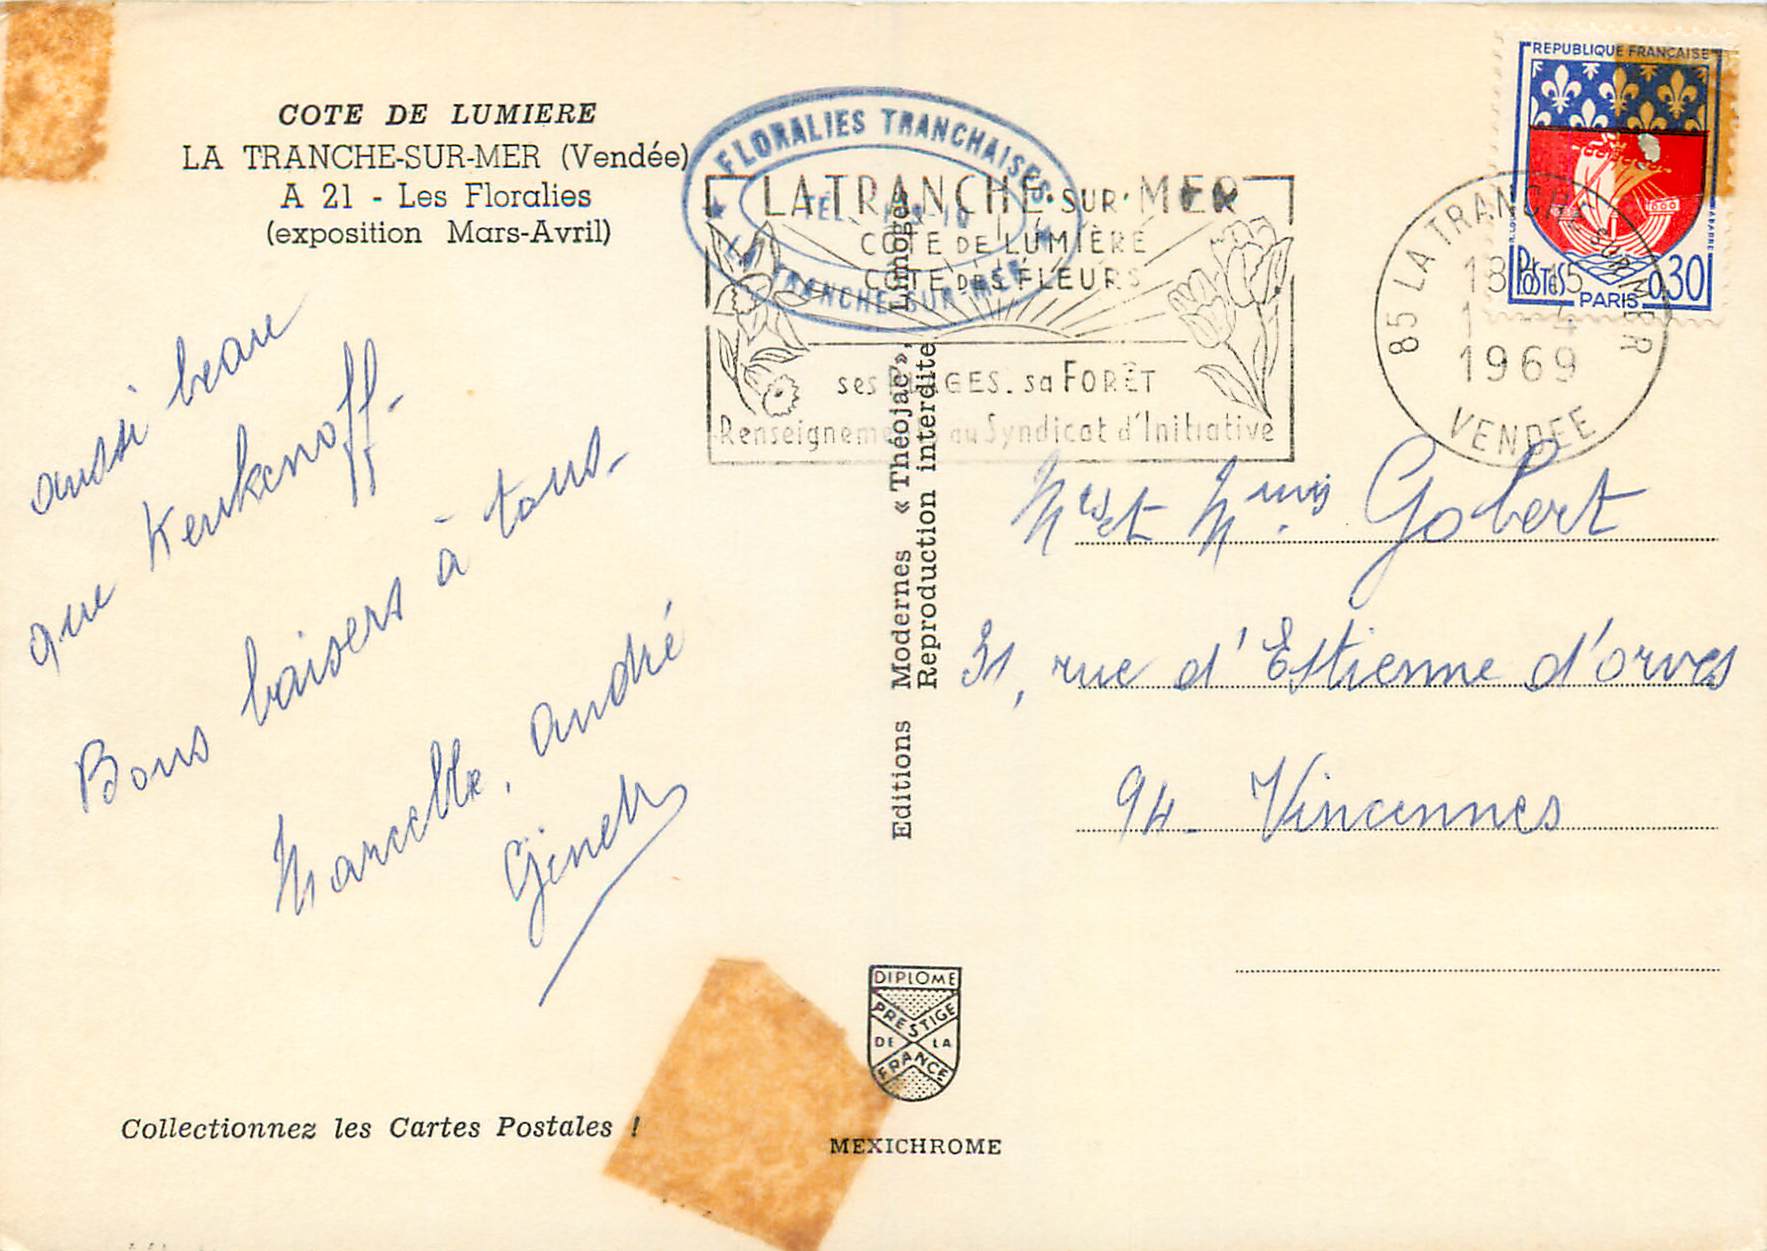 COTE DE LUMIERE
LA TRANCHE-SUR-MER (Vendée)
A 21 - Les Floralies
(exposition Mars-Avril)
aussi beau
que Keukenoff-
Bons baisers à tous-
Marcelle, André
Ginette
Collectionnez les Cartes Postales !
Editions Modernes « Théojac », Limoges
Reproduction interdite
DIPLOME
PRESTIGE
DE LA
FRANCE
MEXICHROME
FLORALIES TRANCHAISES
TÉL.
LA TRANCHE-SUR-MER
LA TRANCHE SUR MER
COTE DE LUMIÈRE
COTE DES FLEURS
ses PLAGES. sa FORÊT
Renseignements au Syndicat d'Initiative
REPUBLIQUE FRANÇAISE
POSTES
PARIS
0,30
85 LA TRANCHE SUR MER
1 - 4
1969
VENDEE
Mrs et Mmes Gobert
31, rue d'Estienne d'orves
94 - Vincennes